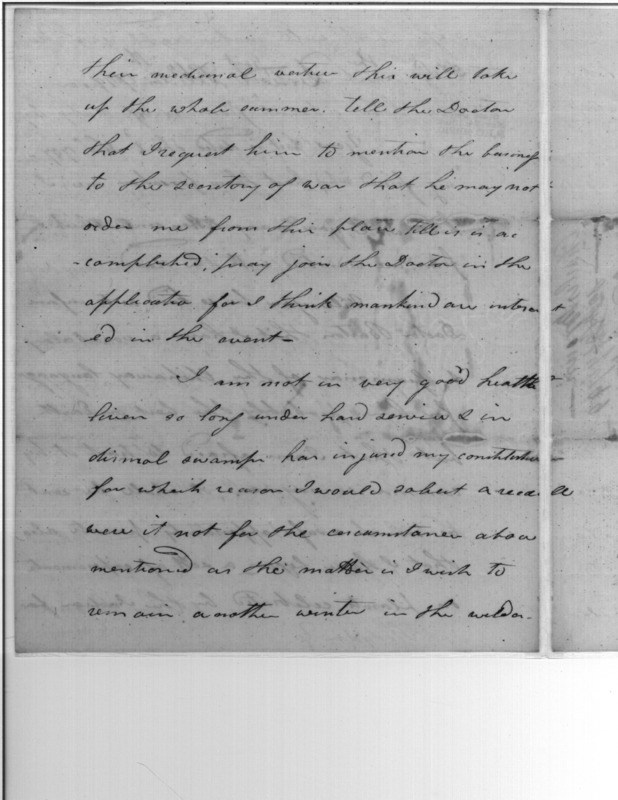 their medicinal vertue this will take
up the whole summer. tell the Doctor
that I request him to mention the business
to the secretory of war that he may not
order me from this place till it is ac
-complished; pray join the Doctor in the
applicatio for I think mankind are interest
ed in the event—
I am not in very good health
liven so long under hard service & in
dismal swamps has injured my constitution
for which reason I would solicit a recall
were it not for the circumstance above
mentioned as the matter is I wish to
remain another winter in the wilder-